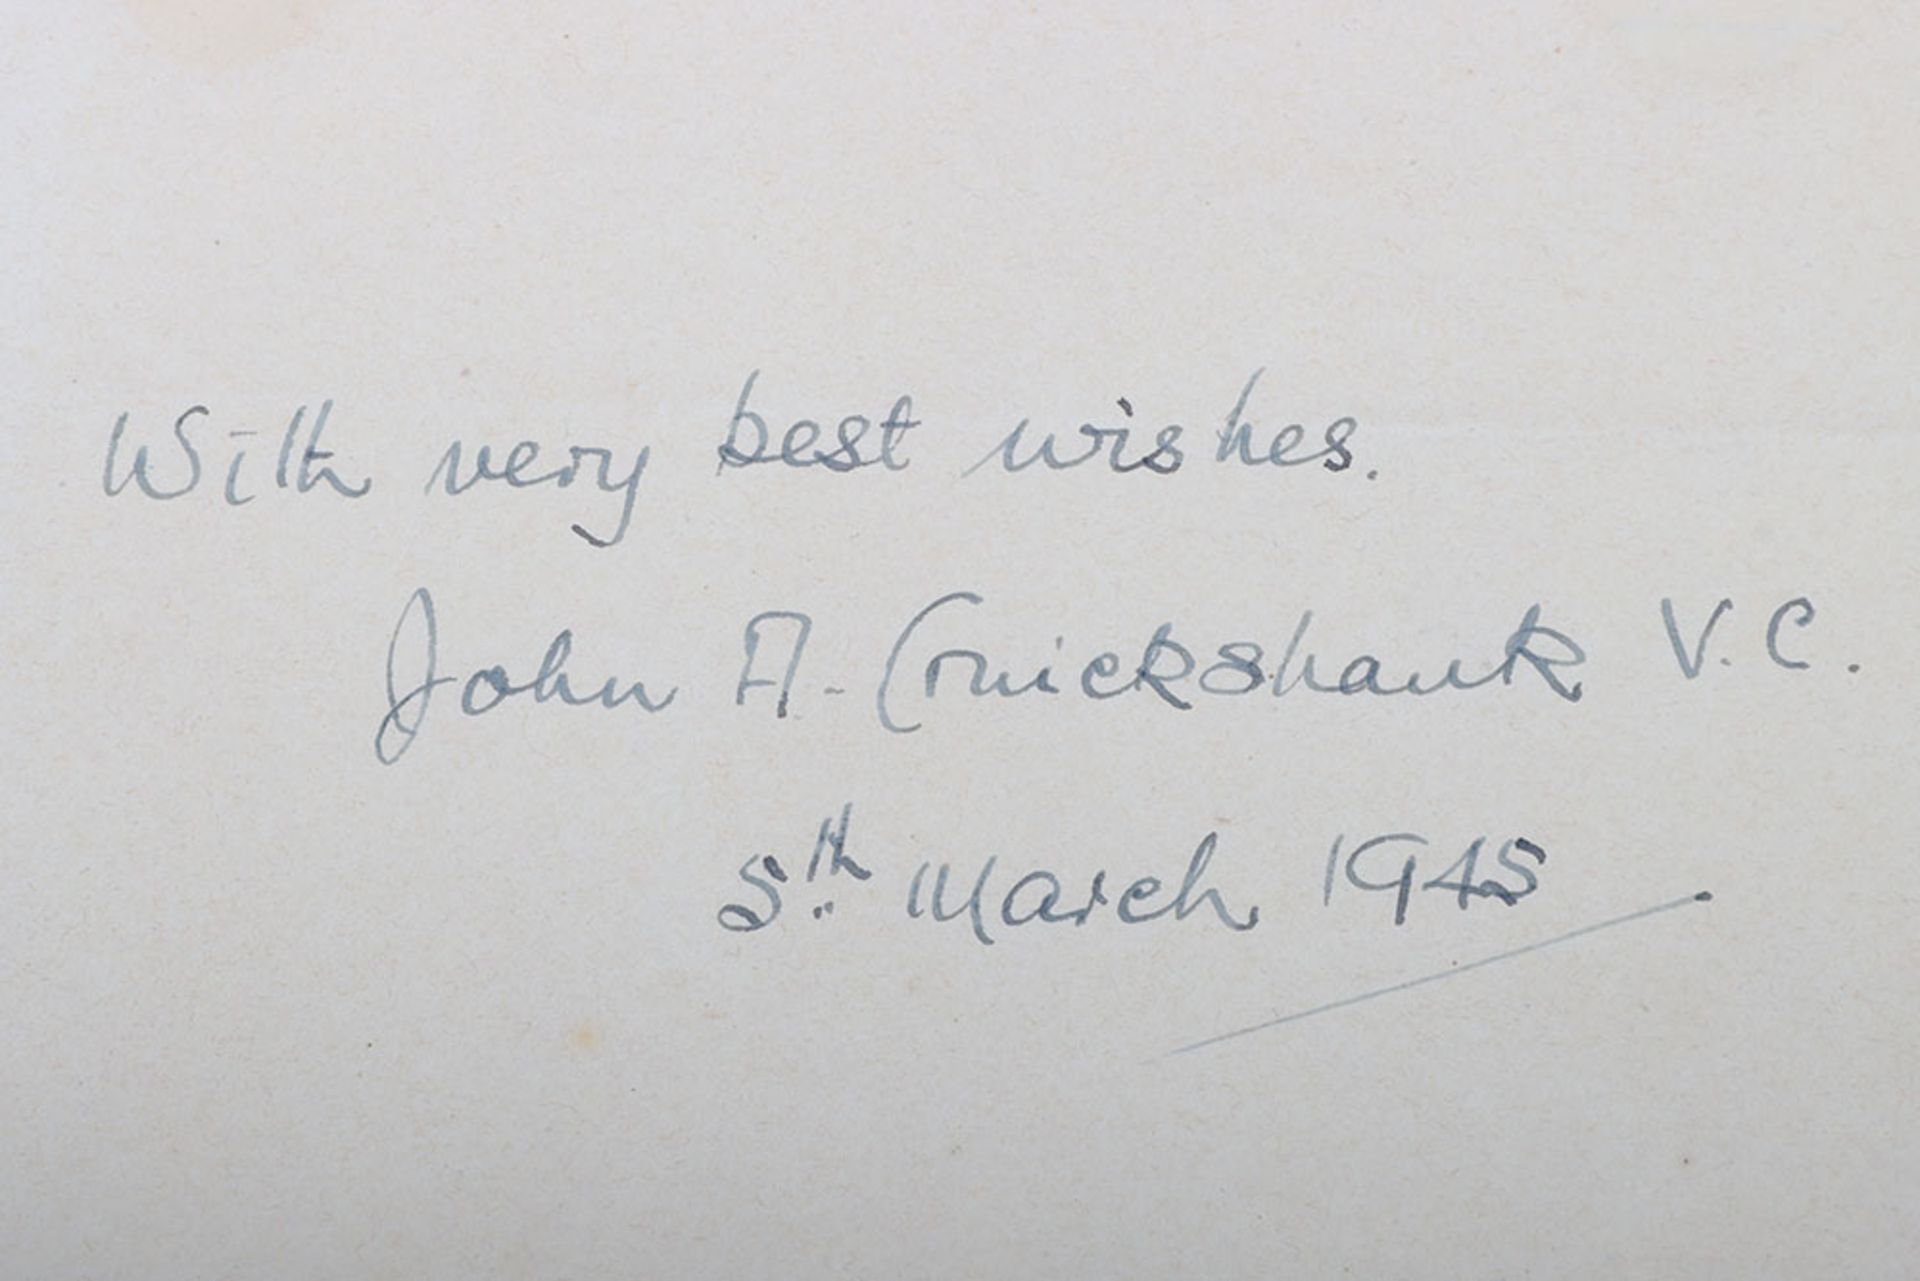 With very best wishes.
John A. Cruickshank V.C.
5th March 1945